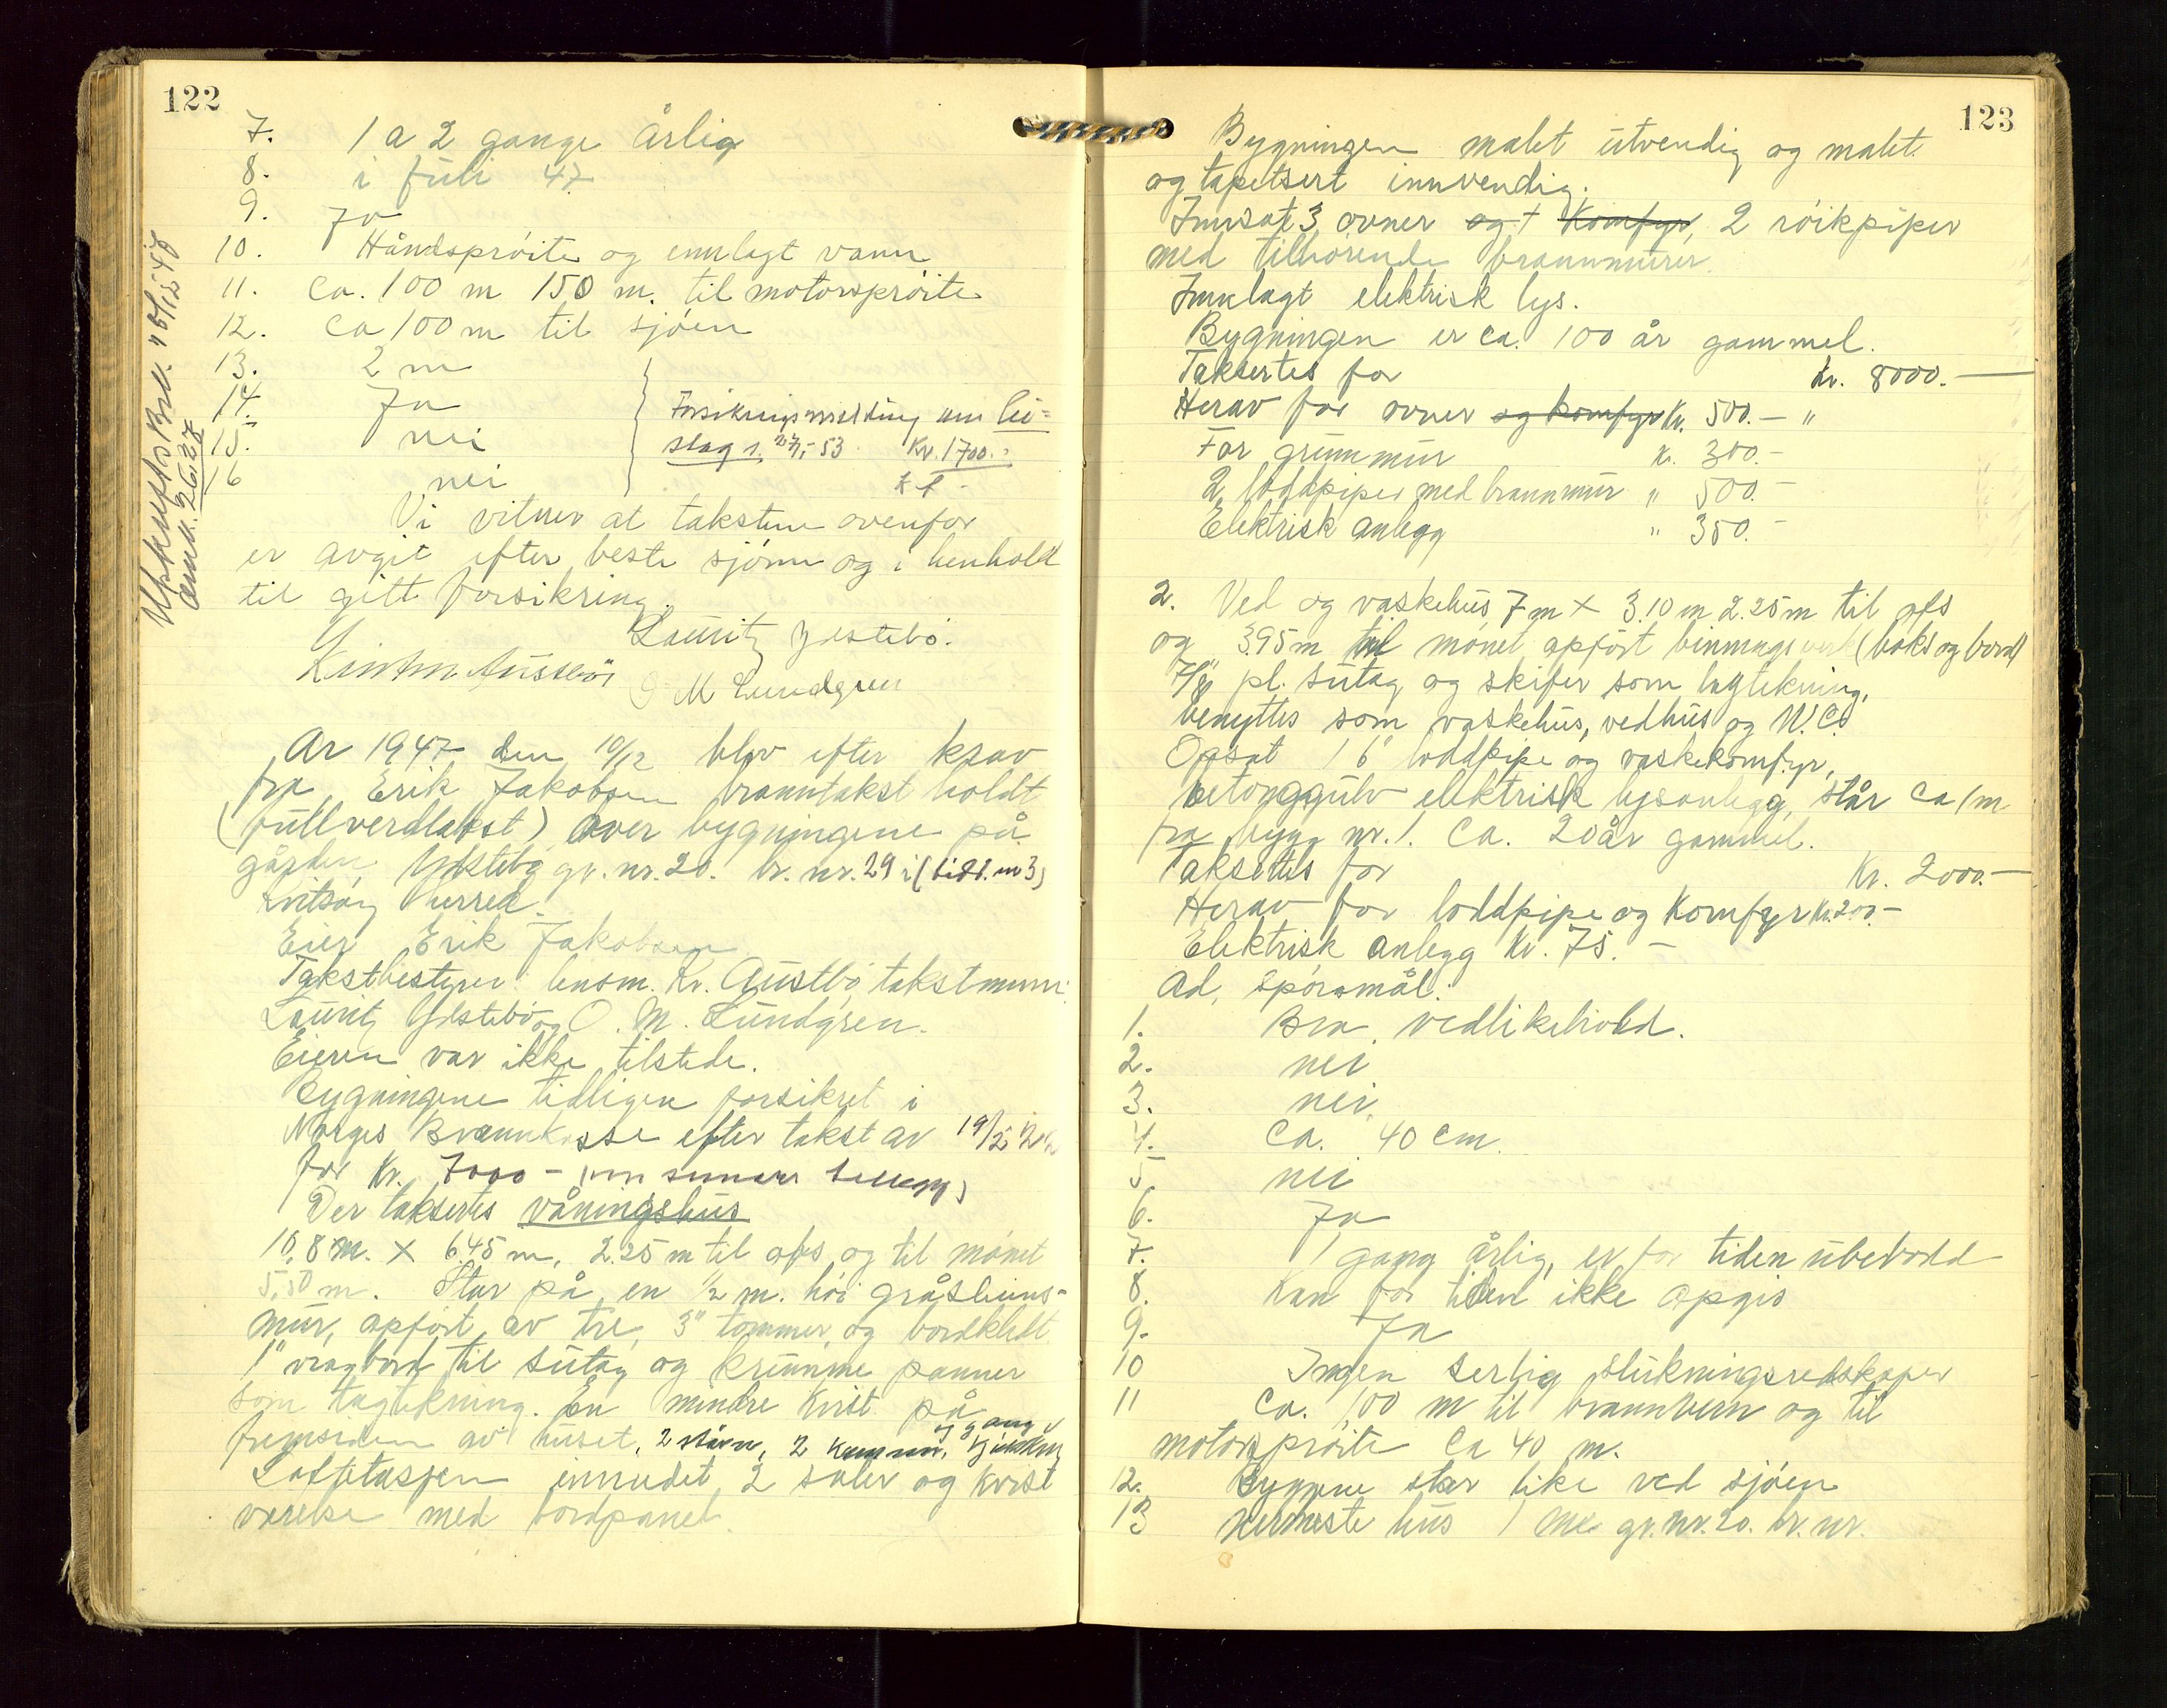 122
7. 1 a 2 gange årlig
8. i juli 47
9. Ja
10. Håndsprøite og innlagt vann
11. Ca. 100 m 150 m. til motorsprøite
12. Ca 100 m til sjøen
13. 2 m
14. Ja
15. nei
16 nei
Forsikringsmelding om
slag 1. 53 Kr. 1700.-
Utskrift Br.
26, 27
Vi vitner at taksten ovenfor
er avgit efter beste skjønn og i henhold
til gitt forsikring.
Lauritz Ydstebø.
Austbø O M Lundgren
Ar 1947 den 10/12 blev efter krav
fra Erik Jakobsen branntakst holdt
(fullverdtakst) over bygningene på
gården Ydstebø gr. nr. 20. br. nr. 29 i
Kvitsøy herred.
Eier Erik Jakobsen
Takstbestyrer: lensm. Kr. Austbø takstmenn:
Lauritz Ydstebø og O. M. Lundgren.
Eieren var ikke tilstede.
Bygningene tidligere forsikret i
Norges Brannkasse efter takst av 19/5
for Kr. 7000 -
Der taksertes våningshus
10,8 m. x 6.45 m, 2.25 m til ofs og til mønet
5,50 m. Star på en 1/2 m. høi gråsteins-
mur, opført av tre, 3" tømmer, og bordkledt
1" vragbord til sutag og krumme panner
som tagtekning. En mindre kvist på
fremsiden av huset, 2 stuer, 2 kammer, kjøkken
og gang
Loftetasjen innredet 2 saler og kvist
værelse med bordpanel.
123
Bygningen malt utvendig og malt
og tapetsert innvendig.
Innsat 3 ovner og 1 Komfyr, 2 røikpiper
med tilhørende brannmurer.
Innlagt elektrisk lys.
Bygningen er ca. 100 år gammel.
Taksertes for Kr. 8000.-
Herav for ovner og komfyr Kr. 500.- "
For grunnmur K. 300.-
2 loddpiper med brannmur " 500.-
Elektrisk anlegg " 350.-
2. Ved og vaskehus 7 m x 3.10 m 2.25 m til ofs
og 3.95 m til mønet opført binningsverk (boks og bord)
7/8" pl. sutag og skifer som tagtekning,
benyttes som vaskehus, vedhus og W.C.
Opsat 1 6" loddpipe og vaskekomfyr,
betonggulv elektrisk lysanlegg, står ca 1 m
fra bygg nr. 1. Ca. 20 år gammel.
Taksertes for Kr. 2000.-
Herav for loddpipe og Komfyr Kr. 200.-
Elektrisk anlegg Kr. 75.-
Ad. spørsmål:
1. Bra vedlikehold.
2. nei
3. nei.
4. Ca. 40 cm.
5 nei
6. Ja
7. 1 gang årlig, er for tiden ubebodd
8. Kan for tiden ikke opgis
9. Ja
10 Ingen serlig slukningsredskaper
11 Ca. 100 m til brannvern og til
motorsprøite Ca 40 m.
12. Byggene står like ved sjøen
13 Nermeste hus 1 me gr. nr. 20. br. nr.